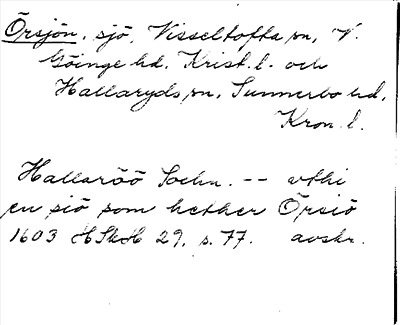 Örsjön, sjö, Visseltofta sn, V.
Göinge hd, Krist. l. och
Hallaryds sn, Sunnerbo hd,
Kron. l.
Hallaröö Sochn. -- vthi
en siö som hether Örsiö
1603 HSkH 29, s. 77. avskr.